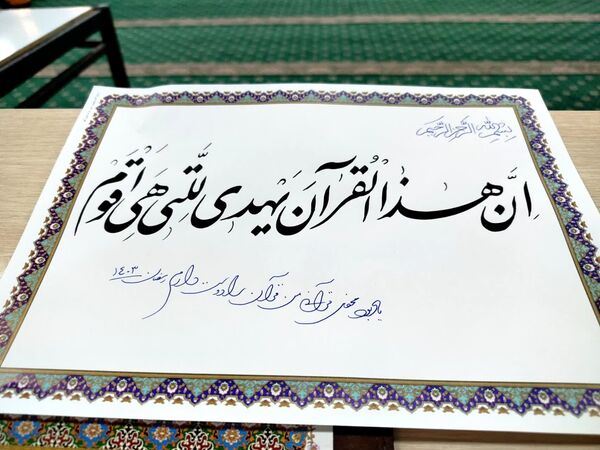 بسم الله الرحمن الرحیم
اِنَّ هذا القُرآنَ یَهدی لِلَّتی هَیَ اَقوَم
یادبود محفل قرآنی من قرآن را دوست دارم رمضان ۱۴۰۳